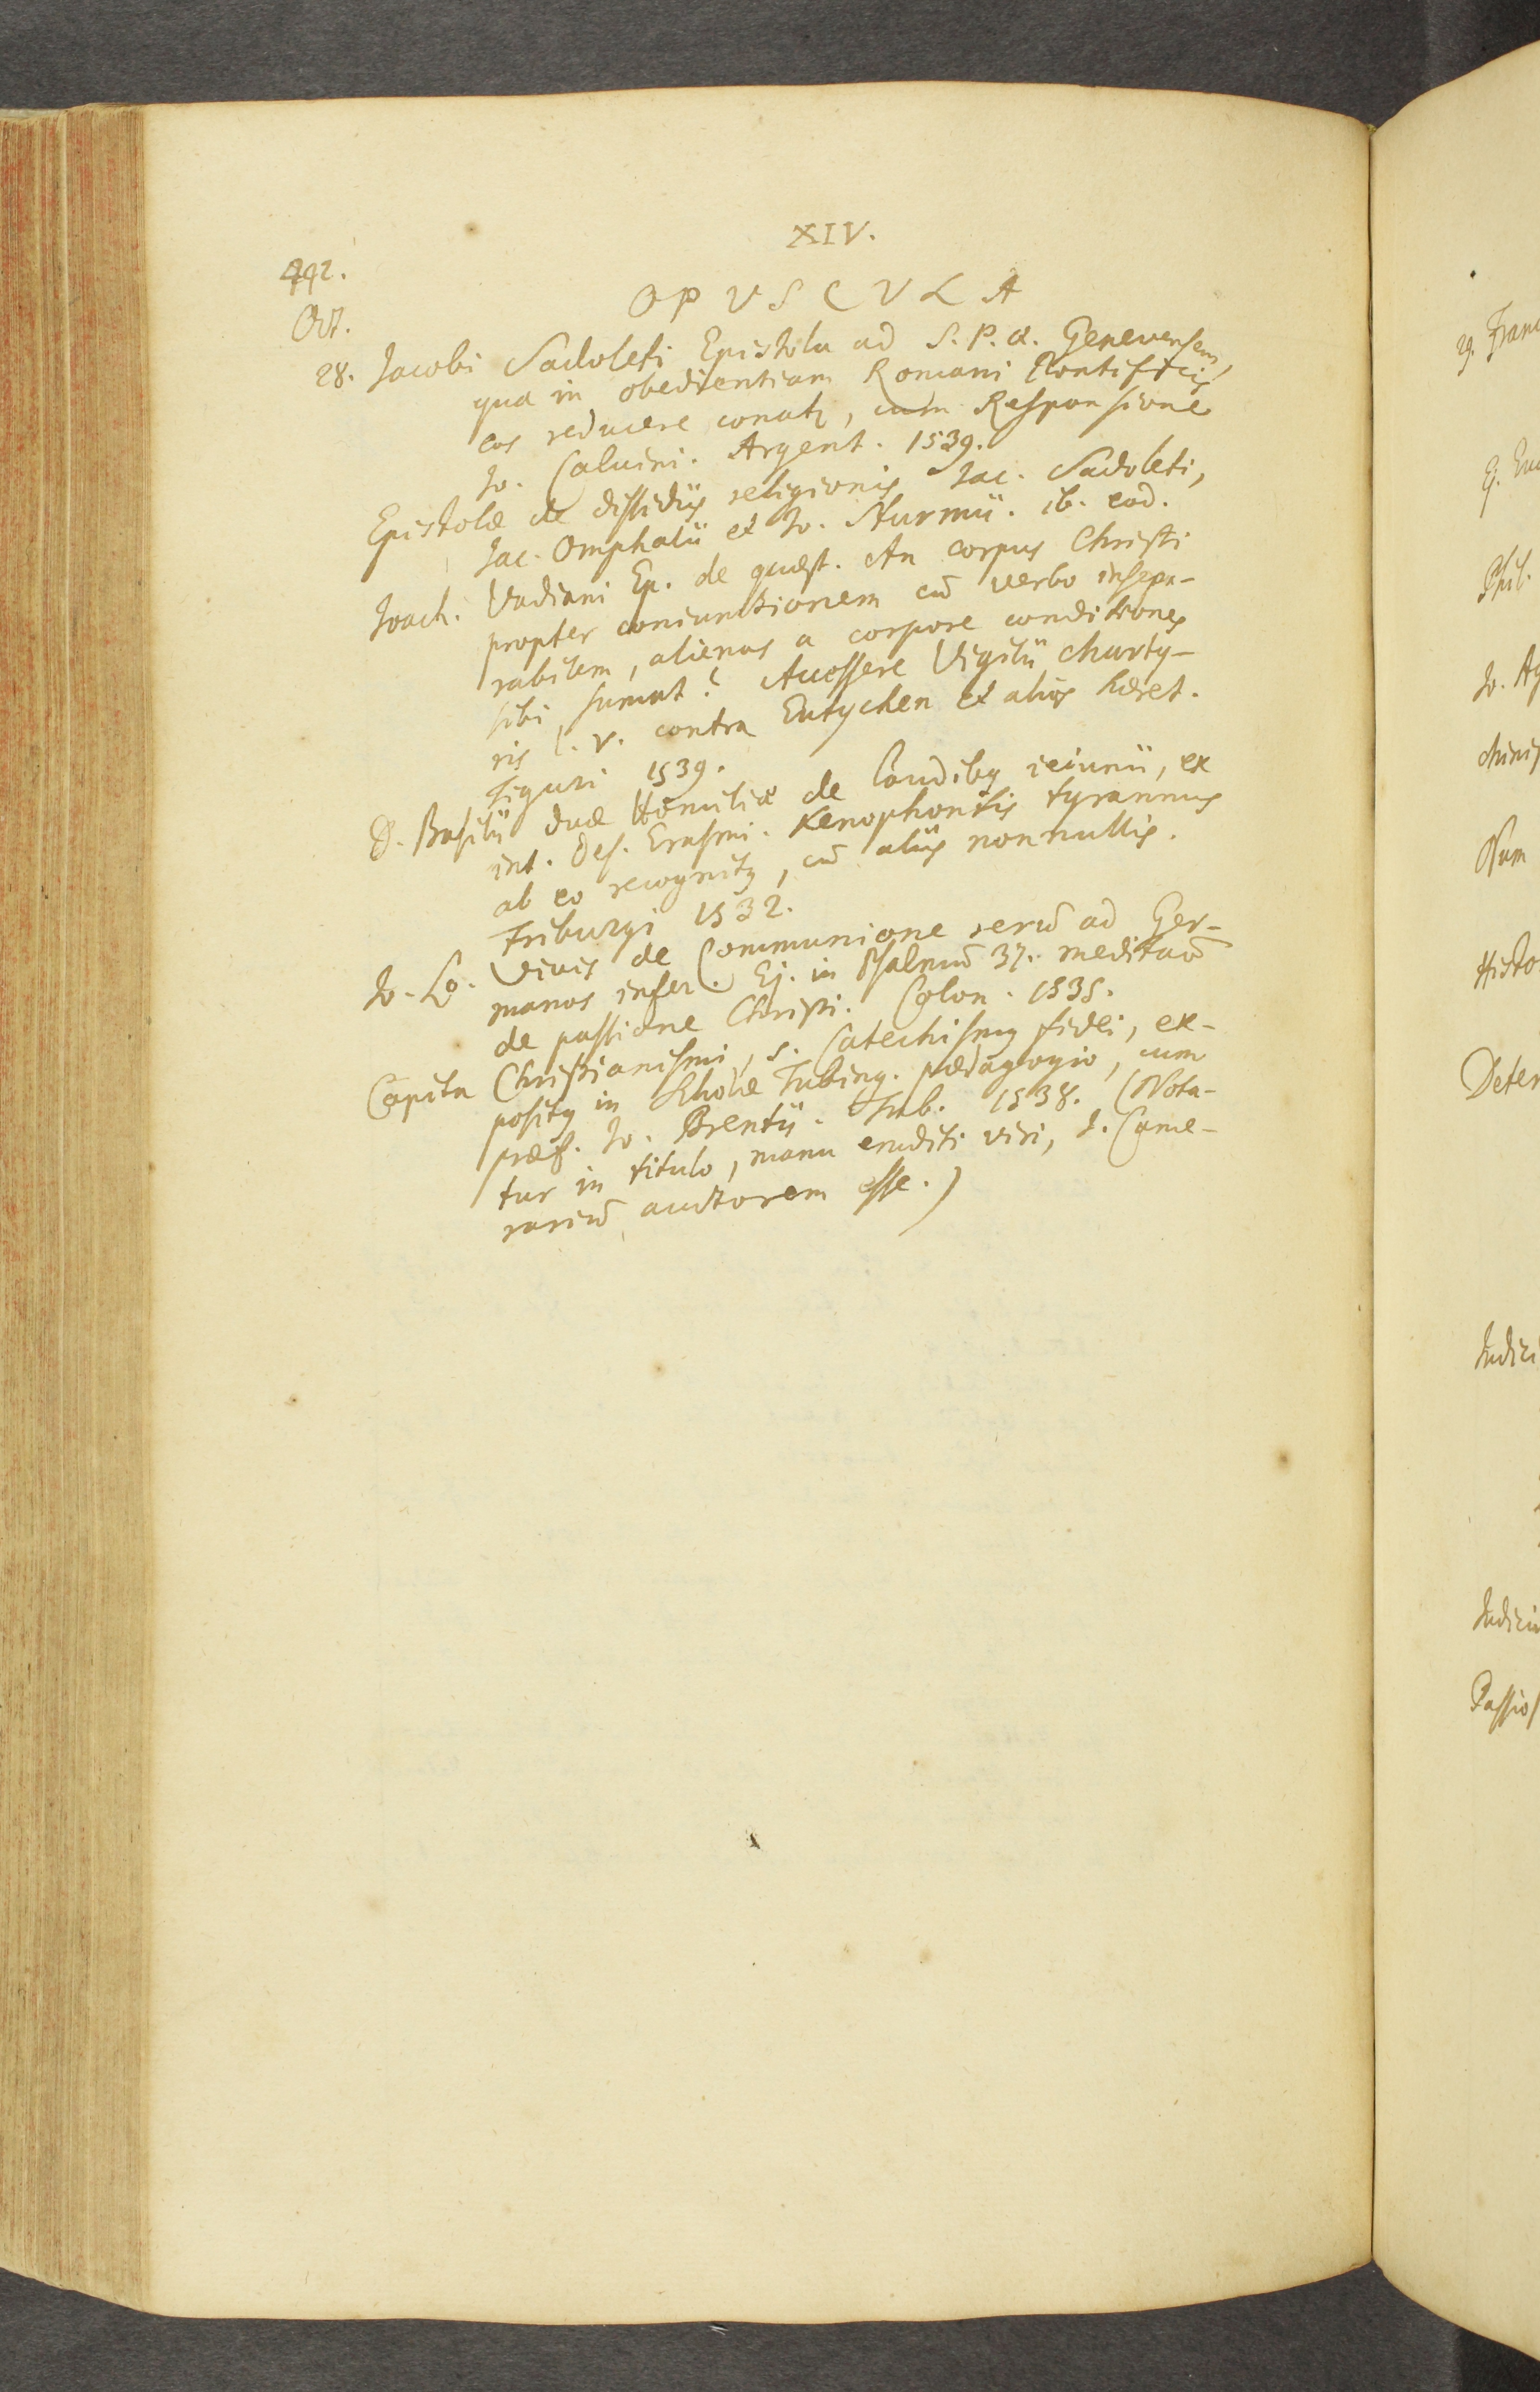 XIV.
492.
OPVSCVLA
Oct.
28. Jacobi Sadoleti Epistola ad S. P. Q. Genevensem,
qua in obedientiam Romani Pontificis
eos reducere conatꝫ, cum Responsione
Jo. Calvini. Argent. 1539.
Epistolæ de dissidiis religionis Jac. Sadoleti,
Jac. Omphalii et Jo. Sturmii. ib. eod.
Joach. Vadiani Ep. de quæst. An corpus Christi
propter coniunctionem cū verbo insepa-
rabilem, alienas a corpore conditiones
sibi sumat? Accessere Vigilii marty-
ris l. V. contra Eutychen et alios hæret.
Tiguri 1539.
D. Basilii duæ Homiliæ de laudibꝫ ieiunii, ex
int. Des. Erasmi. Xenophontis tyrannus
ab eo recognitꝫ, cū aliis nonnullis.
Friburgi 1532.
Jo. Lo. Vivis de Communione rerū ad Ger-
manos infer. Ej. in Psalmū 37. meditatō
de passione Christi. Colon. 1535.
Capita Christianismi, s. Catechismꝫ fidei, ex-
positꝫ in Scholæ Tubing. pædagogio, cum
præf. Jo. Brentii. Tub. 1538. (Nota-
tur in titulo, manu eruditi viri, J. Came-
rariū auctorem esse.)
29. Franc
Phil.
Jo. Ag
Num
Histo
Deter
Judici
Judiciu
Passio